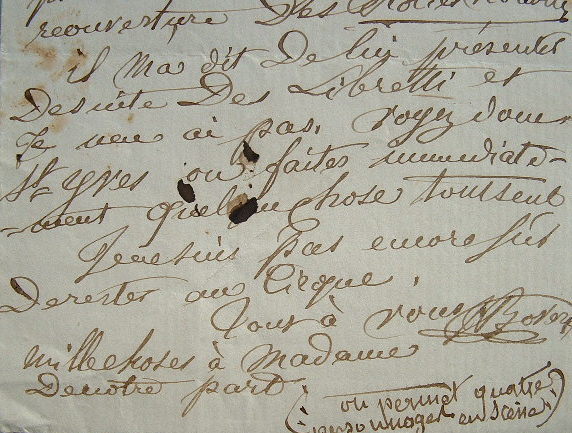 reouverture Des
il m'a dit De lui présenter
De suite Des Libretti et
Je n'en ai pas, voyez donc
St Yves ou faites immédiate-
-ment quelque chose tout seul
Je ne suis pas encore sûr
De rester au Cirque,
Tout à vous
mille choses à Madame
De notre part.
(on permet quatre
personnages en scène.)